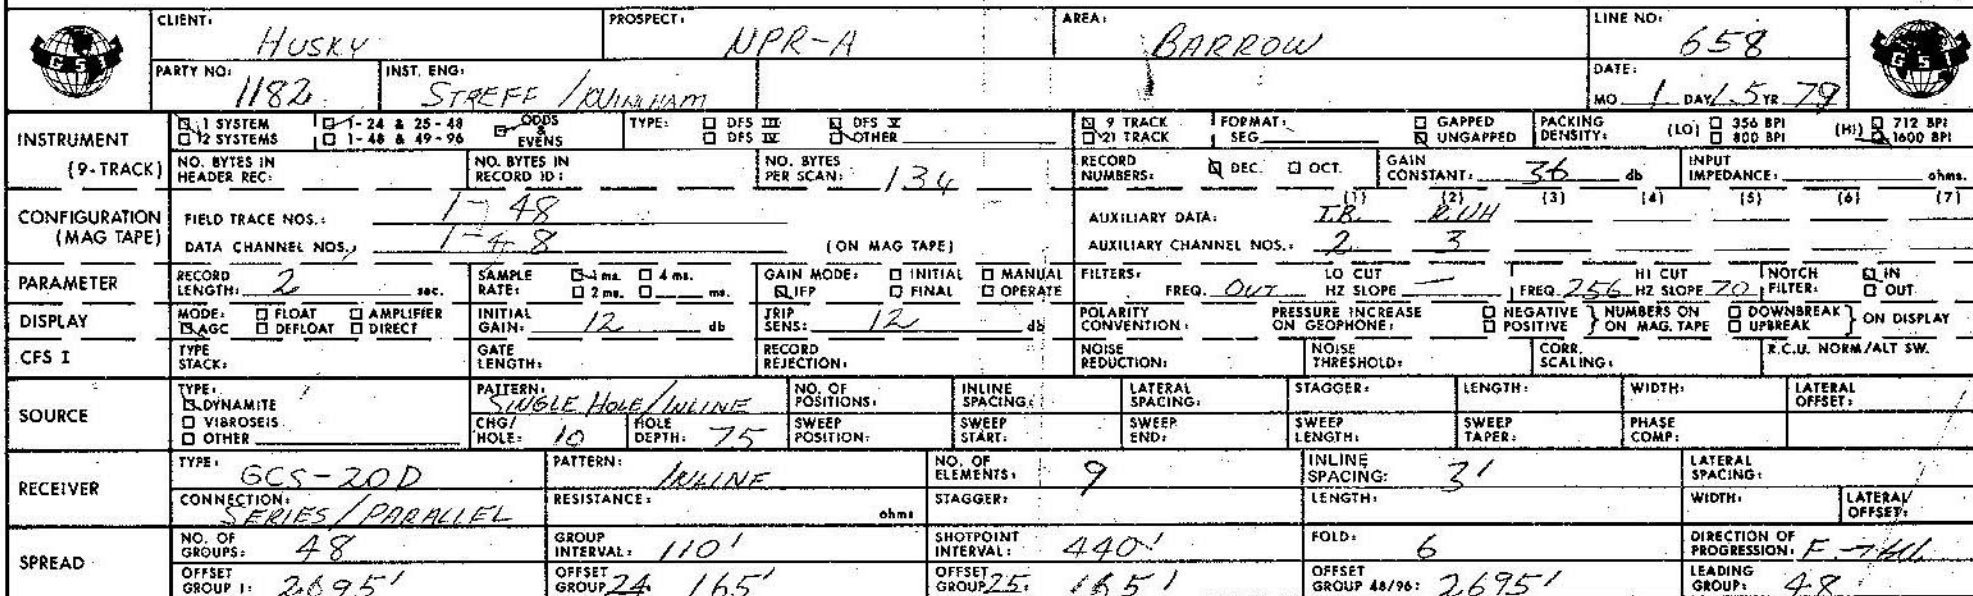 CLIENT: HUSKY PROSPECT: NPR-A AREA: BARROW LINE NO: 658
GSI GSI
PARTY NO: 1182 INST. ENG: STREFF / DATE: MO 1 DAY 15 YR 79
INSTRUMENT 1 SYSTEM 1-24 & 25-48 ODDS & EVENS TYPE: DFS III DFS V 9 TRACK FORMAT: GAPPED PACKING DENSITY: (LO) 356 BPI (HI) 712 BPI
2 SYSTEMS 1-48 & 49-96 DFS IV OTHER 21 TRACK SEG UNGAPPED 800 BPI 1600 BPI
(9-TRACK) NO. BYTES IN HEADER REC: NO. BYTES IN RECORD ID: NO. BYTES PER SCAN: 134 RECORD NUMBERS: DEC. OCT. GAIN CONSTANT: 36 db INPUT IMPEDANCE: ohms.
CONFIGURATION (MAG TAPE) (1) (2) (3) (4) (5) (6) (7)
FIELD TRACE NOS.: 1-48 AUXILIARY DATA: T.B.
DATA CHANNEL NOS.: 1-48 (ON MAG TAPE) AUXILIARY CHANNEL NOS.: 2 3
PARAMETER RECORD LENGTH: 2 sec. SAMPLE RATE: 1 ms. 4 ms. 2 ms. ms. GAIN MODE: INITIAL MANUAL IFP FINAL OPERATE FILTERS: FREQ. OUT LO CUT HZ SLOPE — FREQ. 256 HI CUT HZ SLOPE 70 NOTCH FILTER: IN OUT
DISPLAY MODE: FLOAT AMPLIFIER AGC DEFLOAT DIRECT INITIAL GAIN: 12 db TRIP SENS: 12 db POLARITY CONVENTION: PRESSURE INCREASE ON GEOPHONE: NEGATIVE POSITIVE } NUMBERS ON ON MAG. TAPE DOWNBREAK UPBREAK } ON DISPLAY
CFS I TYPE STACK: GATE LENGTH: RECORD REJECTION: NOISE REDUCTION: NOISE THRESHOLD: CORR. SCALING: R.C.U. NORM/ALT SW.
SOURCE TYPE: DYNAMITE VIBROSEIS OTHER PATTERN: SINGLE HOLE/INLINE NO. OF POSITIONS: INLINE SPACING: LATERAL SPACING: STAGGER: LENGTH: WIDTH: LATERAL OFFSET:
CHG/HOLE: 10 HOLE DEPTH: 75 SWEEP POSITION: SWEEP START: SWEEP END: SWEEP LENGTH: SWEEP TAPER: PHASE COMP:
RECEIVER TYPE: GCS-20D PATTERN: INLINE NO. OF ELEMENTS: 9 INLINE SPACING: 3' LATERAL SPACING:
CONNECTION: SERIES/PARALLEL RESISTANCE: ohms STAGGER: LENGTH: WIDTH: LATERAL/OFFSET:
SPREAD NO. OF GROUPS: 48 GROUP INTERVAL: 110' SHOTPOINT INTERVAL: 440' FOLD: 6 DIRECTION OF PROGRESSION:
OFFSET GROUP 1: 2695' OFFSET GROUP 24: 165' OFFSET GROUP 25: 165' OFFSET GROUP 48/96: 2695' LEADING GROUP: 48